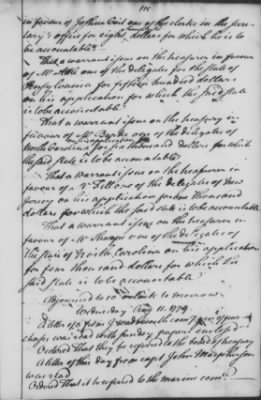 in favour of Joshua one of the clerks in the secre-
tary's office for eight hundred dollars for which he is to
be accountable
That a warrant issue on the treasurer in favour
of Mr one of the delegates for the State of
Pensylvania for fifteen hundred dollars
on his application for which the said state
is to be accountable
That a warrant issue on the treasury in
favour of Mr Burke one of the delegates of
North Carolina on his application for thousand dollars for which
the said state is to be accountable
That a warrant issue on the treasurer in
favour of one of the delegates of New
Jersey on his application for thousand
dollars for which the said state is to be accountable
That a warrant issue on the treasurer in
favour of Mr Sharpe one of the delegates of
the State of North Carolina on his application
for four thousand dollars for which the
said state is to be accountable
Adjourned to 10 o'Clock to morrow
Wednesday Aug 11. 1779
A letter of 10 from J Wadsworth comy genl of pur-
chases was read with sundry papers enclosed
Ordered That they be referred to the board of treasury
A letter of this day from capt John Macpherson
was read
Ordered That it be referred to the marine comee